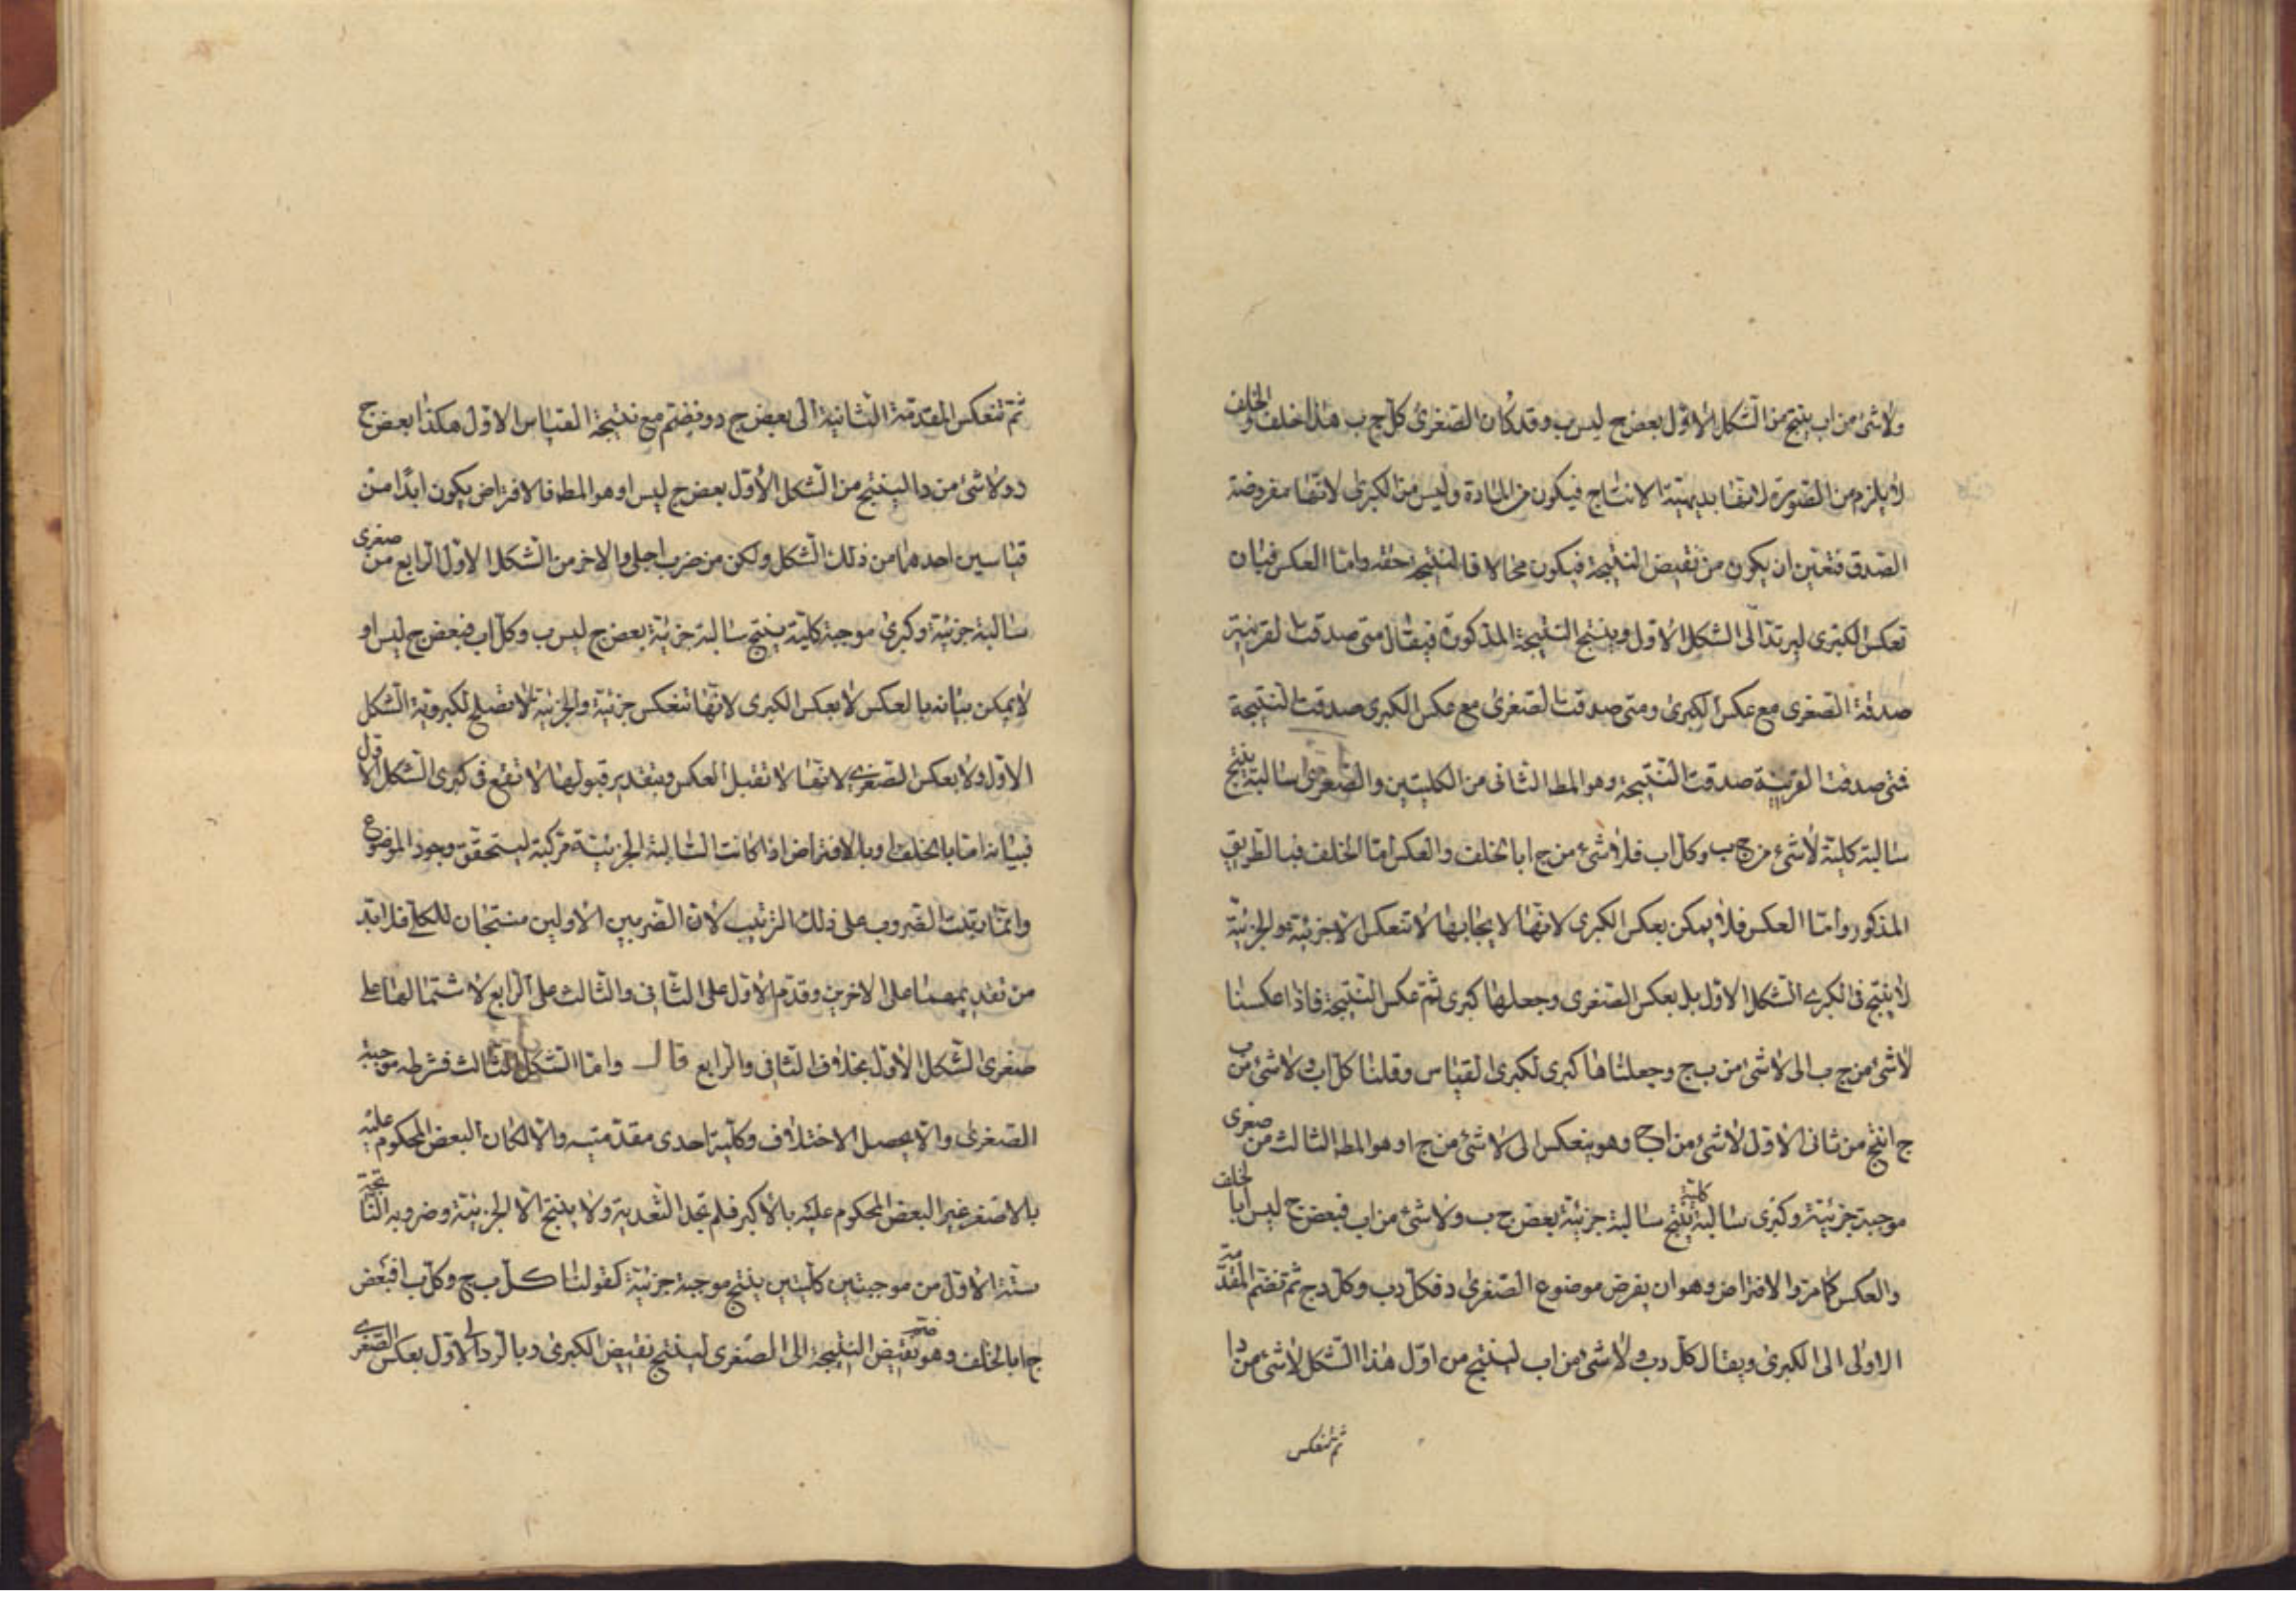 ولا شئ من اب ينتج من الشكل الاول بعض ج ليس ب وقد كان الصغرى كل ج ب هذا خلف والخلف
لا يلزم من الصورة لانها بديهية الانتاج فيكون من المادة وليس من الكبرى لانها مفروضة
الصدق فتعين ان يكون من نقيض النتيجة فيكون محالا فالنتيجة حقه واما العكس فبان
تعكس الكبرى ليرتد الى الشكل الاول وينتج النتيجة المذكورة فيقال متى صدقت القرينة
صدقة الصغرى مع عكس الكبرى ومتى صدقت الصغرى مع عكس الكبرى صدقت النتيجة
فمتى صدقت القرينة صدقت النتيجة وهو المط الثانى من الكليتين والصغرى سالبة ينتج
سالبة كلية لا شئ من ج ب وكل اب فلا شئ من ج ا بالخلف والعكس اما الخلف فبالطريق
المذكور واما العكس فلا يمكن بعكس الكبرى لانها لايجابها لا تنعكس الا جزئية والجزئية
لا ينتج فى الكبرى الشكل الاول بل بعكس الصغرى وجعلها كبرى ثم عكس النتيجة فاذا عكسنا
لا شئ من ج ب الى لا شئ من ب ج وجعلناها كبرى لكبرى القياس وقلنا كل اب ولا شئ من ب
ج انتج من ثانى الاول لا شئ من اج وهو ينعكس الى لا شئ من ج ا وهو المط الثالث من صغرى
موجبة جزئية وكبرى سالبة كلية ينتج سالبة جزئية بعض ج ب ولا شئ من اب فبعض ج ليس ا بالخلف
والعكس كما مر والافتراض وهو ان يفرض موضوع الصغرى د فكل دب وكل دج ثم تضم المقدمة
الاولى الى الكبرى ويقال كل دب ولا شئ من اب لينتج من اول هذا الشكل لا شئ من دا
ثم تنعكس
ثم تنعكس المقدمة الثانية الى بعض ج د ونضم مع نتيجة القياس الاول هكذا بعض ج
د ولا شئ من دا لينتج من الشكل الاول بعض ج ليس ا وهو المط فالافتراض يكون ابدًا من
قياسين احدهما من ذلك الشكل ولكن من ضرب اجلى والاخر من الشكل الاول الرابع من صغرى
سالبة جزئية وكبرى موجبة كلية ينتج سالبة جزئية بعض ج ليس ب وكل اب فبعض ج ليس ا و
لا يمكن بيانه بالعكس لا بعكس الكبرى لانها تنعكس جزئية والجزئية لا تصلح لكبروية الشكل
الاول ولا بعكس الصغرى لانها لا تقبل العكس وبتقدير قبولها لا تقع فى كبرى الشكل الاول
فبيانه اما بالخلف او بالافتراض اذا كانت السالبة الجزئية مركبة ليتحقق وجود الموضوع
وانما رتبت الضروب على ذلك الترتيب لان الضربين الاولين منتجان للكلى فلا بد
من تقديمهما على الاخرين وقدم الاول على الثانى والثالث على الرابع لاشتمالهما على
صغرى الشكل الاول بخلاف الثانى والرابع قال واما الشكل الثالث فشرطه موجبة
الصغرى والا يحصل الاختلاف وكلية احدى مقدمتيه والا لكان البعض المحكوم عليه
بالاصغر غير البعض المحكوم عليه بالاكبر فلم تجد التعدية ولا ينتج الا الجزئية وضروبه الناتجة
ستة الاول من موجبتين كليتين ينتج موجبة جزئية كقولنا كل ب ج وكل ب ا فبعض
ج ا بالخلف وهو ضم نقيض النتيجة الى الصغرى لينتج نقيض الكبرى وبالرد الى الاول بعكس الصغرى